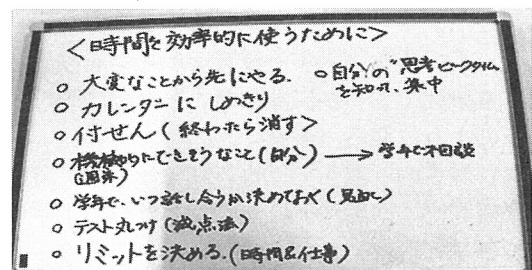 <時間を効率的に使うために>
○ 大変なことから先にやる.
○ 自分の"思考ピークタイム
を知って、集中
○ カレンダーに しめきり
○ 付せん(終わったら消す>
○ 機械的にできそうなこと(自分) → 学年で相談
○ 学年で、いつ話し合うか決めておく(見通し)
○ テスト丸つけ(減点法)
○ リミットを決める.(時間&仕事)